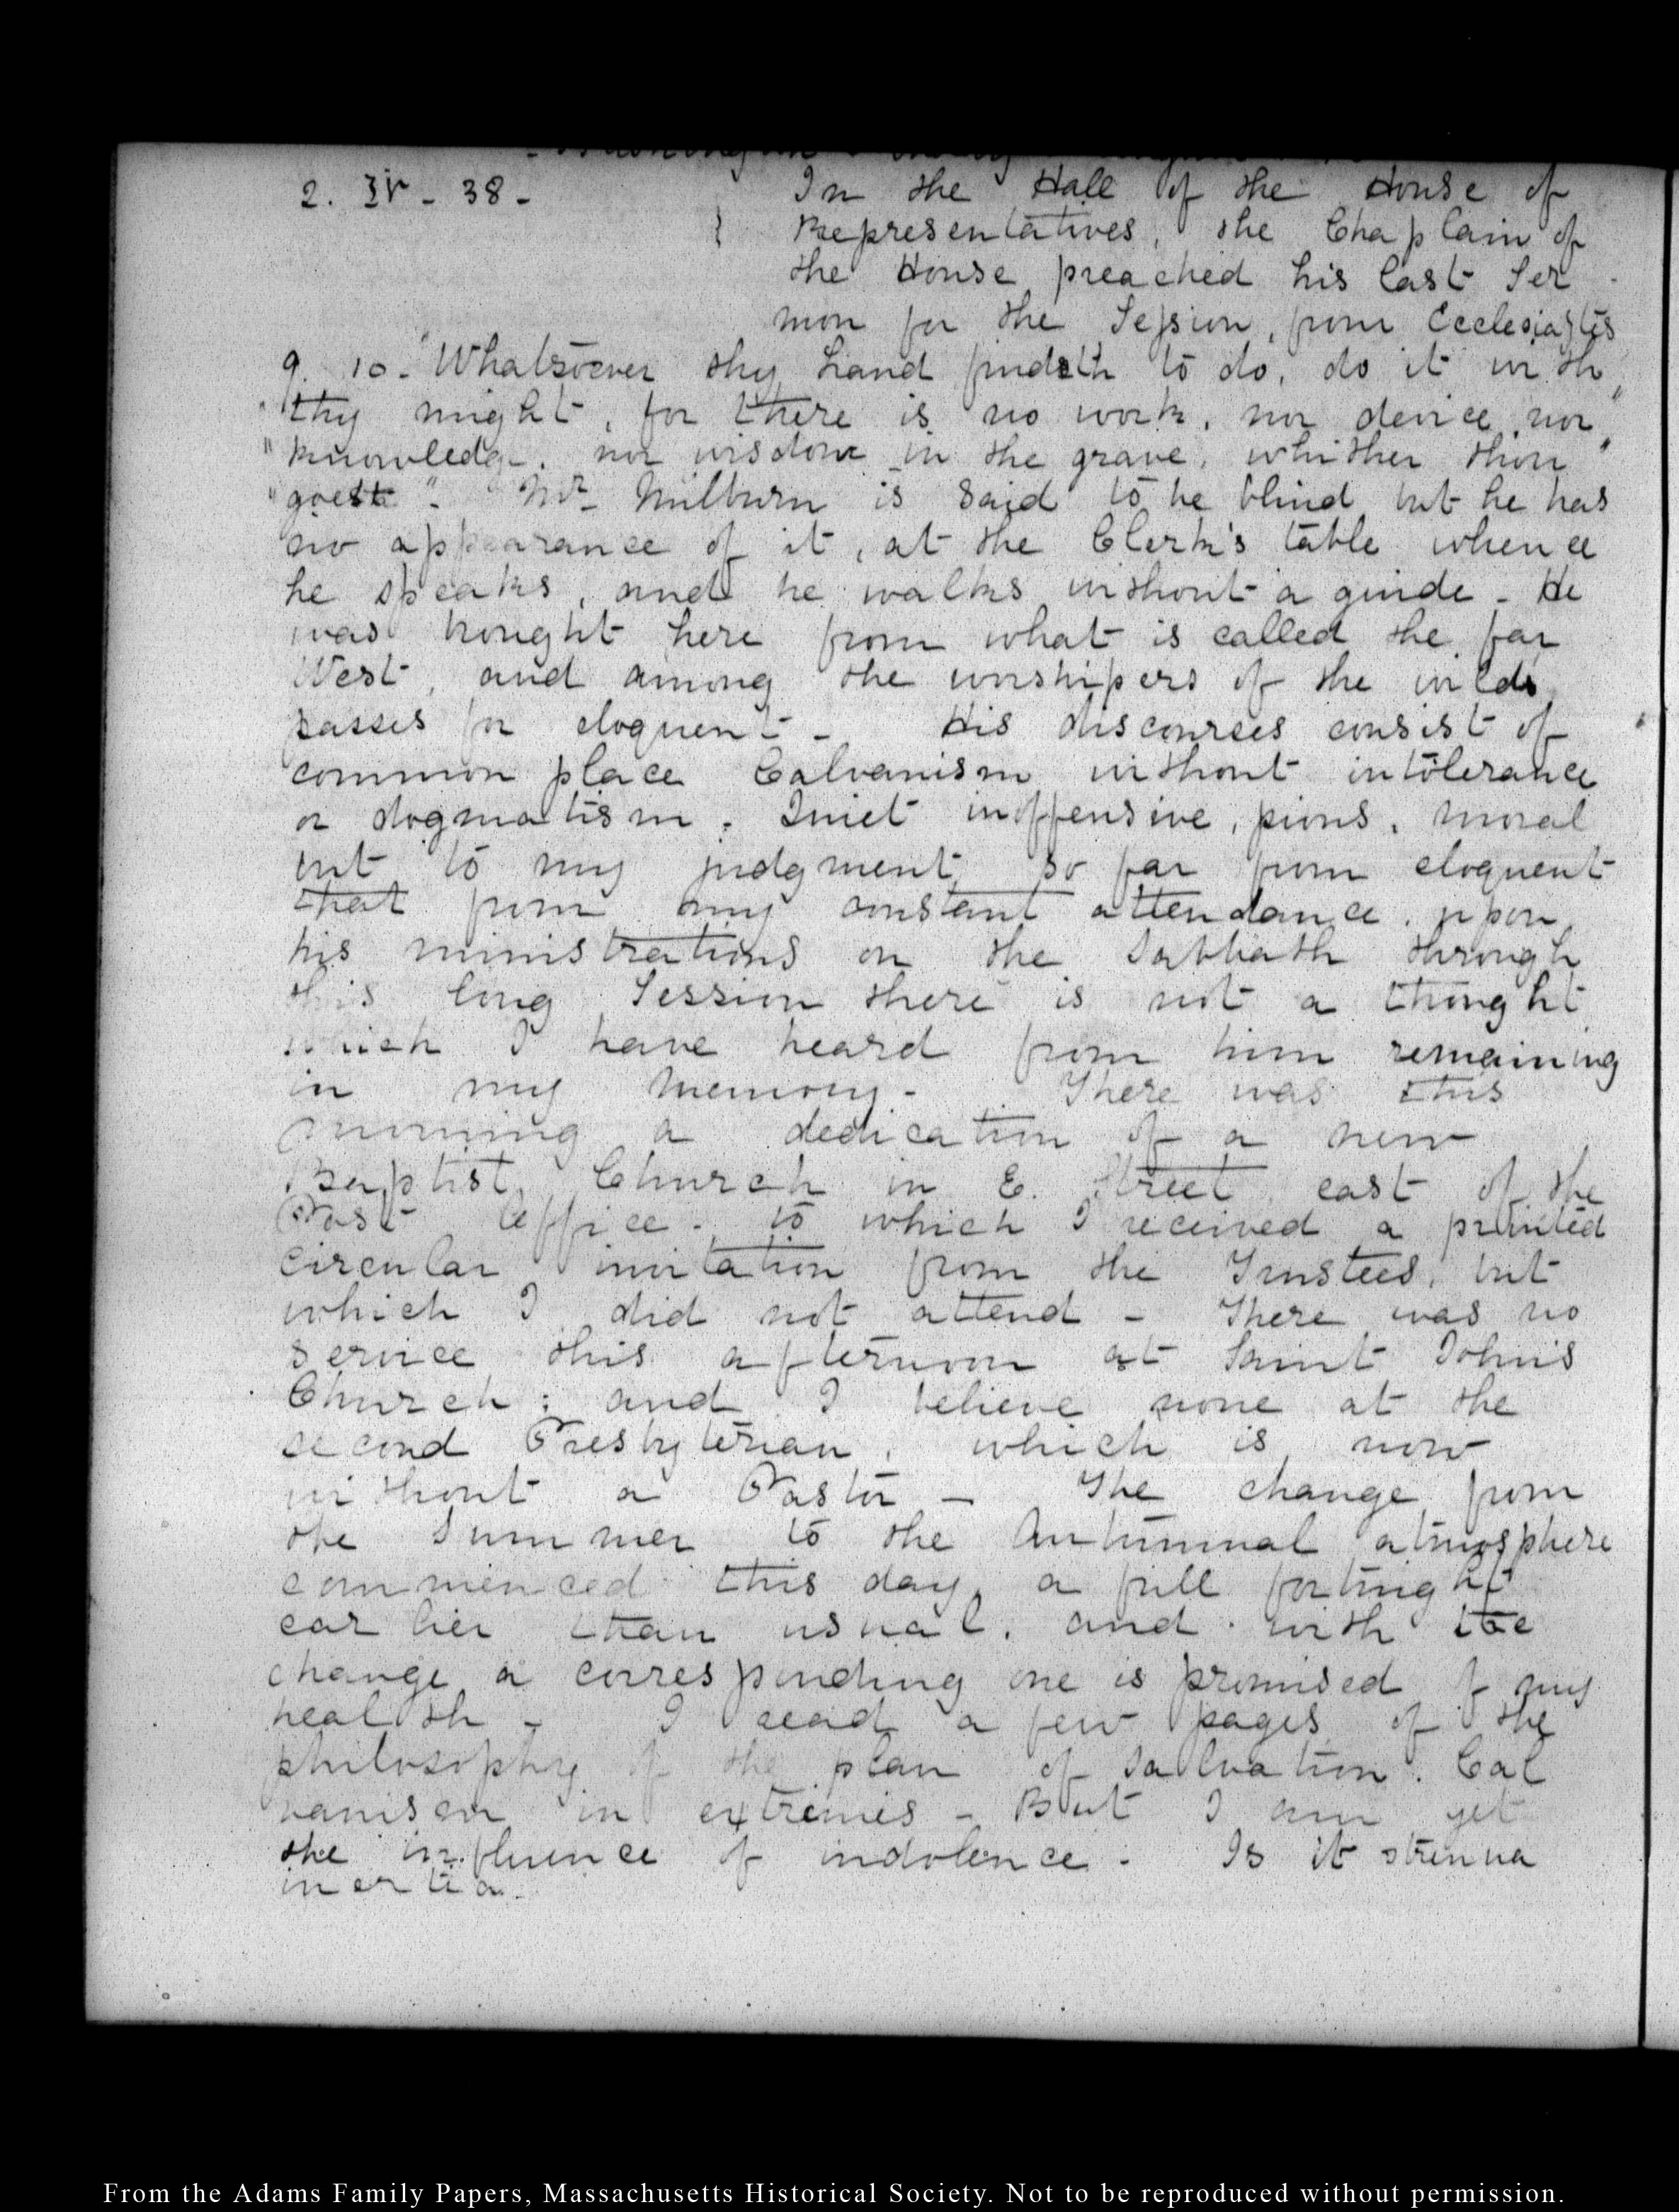 2. IV - 38 - In the Hall of the House of
} Representatives, the Chaplain of
the House preached his last Ser
mon for the Session, from Ecclesiastes
9. 10. "Whatsoever thy hand findeth to do, do it with
"thy might, for there is no work, nor device, nor"
"knowledge, nor wisdom in the grave, whither thou"
"goest". Mr Milburn is said to be blind but he has
no appearance of it, at the Clerk's table whence
he speaks, and he walks without a guide - He
was brought here from what is called the far
West, and among the worshipers of the wilds
passes for eloquent - His discourses consist of
common place Calvanism without intolerance
or dogmatism. Quiet inoffensive, pious, moral
but to my judgment so far from eloquent
that from my constant attendance upon
his ministrations on the Sabbath through
this long Session there is not a thought
which I have heard from him remaining
in my memory - There was this
morning a dedication of a new
Baptist Church in E. Street east of the
Post Office, to which I received a printed
circular invitation from the Trustees, but
which I did not attend - There was no
service this afternoon at Saint John's
Church; and I believe none at the
second Presbyterian, which is now
without a Pastor - The change from
the Summer to the Autumnal atmosphere
commenced this day, a full fortnight
earlier than usual, and with the
change a corresponding one is promised of my
health - I read a few pages of the
philosophy of the plan of Salvation. Cal
vanism in extremes - But I am yet
the influence of indolence. Is it strenua
inertia.
From the Adams Family Papers, Massachusetts Historical Society. Not to be reproduced without permission.